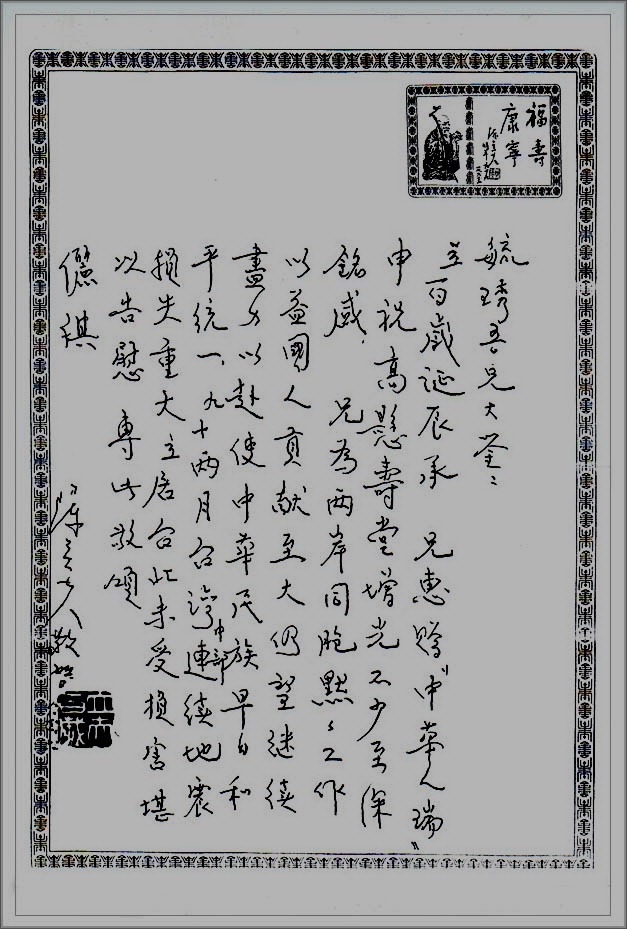 福壽
康寧
毓琇吾兄大鑒：
立百歲誕辰承　兄惠賜“中華人瑞”
申祝高懸壽堂增光不少至深
銘感，　兄為兩岸同胞默默工作
以益國人貢献至大仍望继续
盡力以赴使中華民族早日和
平统一、九十两月台灣中部連续地震
損失重大立居台北未受損害堪
以告慰專此敬頌
儷祺
陳立夫敬啓